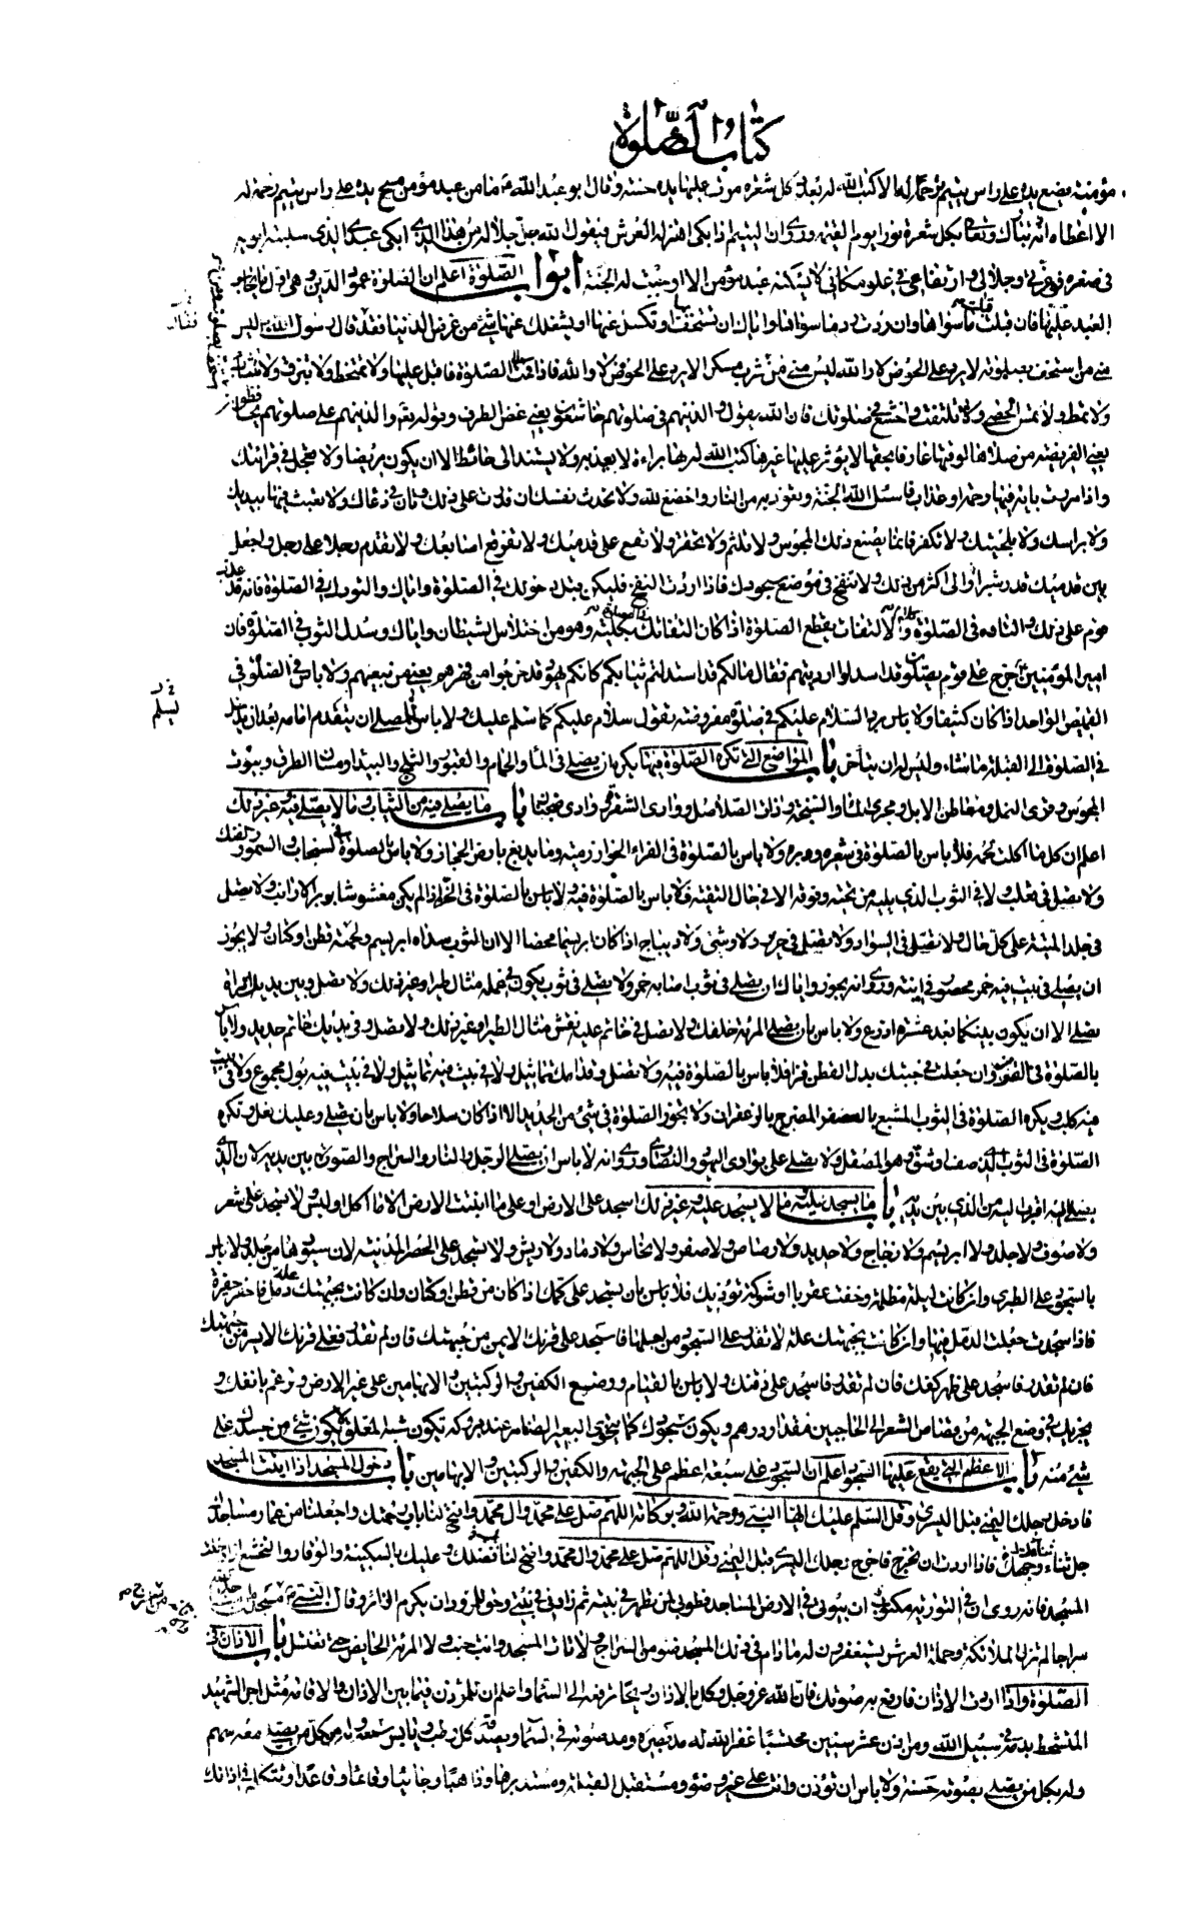 كتاب الصلوة
مؤمنة يضع يده على راس يتيم ترحما له الا كتب الله له بعدد كل شعرة مرت عليها يده حسنة وقال ابو عبد الله ع ما من عبد مؤمن مسح يده على راس يتيم رحمة له
الا اعطاه الله بكل شعرة نورا يوم القيمة وروى ان اليتيم اذا بكى اهتز له العرش فيقول الله جل جلاله من هذا الذى ابكى عبدى الذى سلبته ابويه
فى صغره فوعزتى وجلالى وارتفاعى فى علو مكانى لا يسكته عبد مؤمن الا اوجبت له الجنة ابواب الصلوة اعلم ان الصلوة عمود الدين وهى اول ما يحاسب
العبد عليها فان قبلت قبل ما سواها وان ردت رد ما سواها واياك ان تستخف بها او تكسل عنها او يشغلك عنها شئ من غرض الدنيا فقد قال رسول الله ليس
منى من استخف بصلوته لا يرد على الحوض لا والله ليس منى من شرب مسكرا لا يرد على الحوض لا والله فاذا قمت الى الصلوة فاقبل عليها ولا تمتخط ولا تبزق ولا تتثاب
ولا تمط ولا تمس الحصى ولا تلتفت واخشع فى صلوتك فان الله يقول والذينهم فى صلوتهم خاشعون يعنى غض الطرف وقوله والذينهم على صلوتهم يحافظون
يعنى الفريضة من صلاها لوقتها عارفا بحقها لا يؤثر عليها غيرها كتب الله له بها براءة لا يعذبه ولا يستند الى حائط الا ان يكون مريضا ولا تعجل فى قرائتك
واذا مررت باية فيها رحمة او عذاب فاسئل الله الجنة وتعوذ به من النار واخضع لله ولا تحدث نفسك ان قدرت على ذلك وتان فى دعاك ولا تعبث فيها بيديك
ولا براسك ولا بلحيتك ولا تكفر فانما يصنع ذلك المجوس ولا تلثم ولا تحتفز ولا تقع على قدميك ولا تفرقع اصابعك ولا تقدم رجلا على رجل واجعل
بين قدميك قدر شبر او الى اكثر من ذلك ولا تنفخ فى موضع سجودك فاذا اردت النفخ فليكن قبل دخولك فى الصلوة واياك والتورك فى الصلوة فانه قد عذب
قوم على ذلك والتاوه فى الصلوة كلام والالتفات يقطع الصلوة اذا كان التفاتك بكليته وهو من اختلاس الشيطان واياك وسدل الثوب فى الصلوة فان
امير المؤمنين خرج على قوم يصلون قد اسدلوا ارديتهم فقال ما لكم قد اسدلتم ثيابكم كانكم يهود قد خرجوا من فهرهم يعنى من بيعهم ولا باس فى الصلوة فى
القميص الواحد اذا كان كثيفا ولا باس برد السلام عليكم فى صلوة مفروضة تقول سلام عليكم كما سلم عليك ولا باس للمصلى ان يتقدم امامه بعد ان يدخل
فى الصلوة الى القبلة ما شاء وليس له ان يتاخر باب المواضع التى تكره الصلوة فيها يكره ان يصلى فى الماء والحمام والقبور والثلج والبيداء ومسان الطرق وبيوت
المجوس وقرى النمل ومعاطن الابل ومجرى الماء والسبخة وذات الصلاصل ووادى الشقرة ووادى ضجنان باب ما يصلى فيه من الثياب وما لا يصلى فيه وغير ذلك
اعلم ان كل ما اكلت لحمه فلا باس بالصلوة فى شعره ووبره ولا باس بالصلوة فى الفراء الخوارزمية وما يدبغ بارض الحجاز ولا باس بالصلوة فى السنجاب والسمور والفنك
ولا تصل فى ثعلب ولا فى الثوب الذى يليه من تحته وفوقه الا فى حال التقية ولا باس بالصلوة فيه ولا باس بالصلوة فى الخز اذا لم يكن مغشوشا بوبر الارانب ولا تصل
فى جلد الميتة على كل حال ولا تصل فى السواد ولا تصل فى حرير ولا وشى ولا ديباج اذا كان ابريسما محضا الا ان الثوب سداه ابريسم ولحمته قطن او كتان ولا يجوز
ان يصلى فى بيت فيه خمر محصور فى انية وروى انه يجوز واياك ان تصلى فى ثوب اصابه خمر ولا تصلى فى ثوب يكون فى علمه مثال طير او غير ذلك ولا تصل وبين يديك امراة
تصلى الا ان يكون بينكما بعد عشرة اذرع ولا باس بان تصلى المرئة خلفك ولا تصل فى خاتم عليه نقش مثال الطير او غير ذلك ولا تصل وفى يديك خاتم حديد ولا باس
بالصلوة فى القز وان جعلت فى جبتك بدل القطن قزا فلا باس بالصلوة فيه ولا تصل وقدامك تماثيل ولا فى بيت فيه تماثيل ولا فى بيت فيه بول مجموع ولا فى بيت
فيه كلب ويكره الصلوة فى الثوب المشبع بالعصفر المضرج بالزعفران ولا تجوز الصلوة فى شئ من الحديد الا اذا كان سلاحا ولا باس بان تصلى وعليك نعل وتكره
الصلوة فى الثوب الذى صف او شف وهو المصقل ولا تصلى على بوارى اليهود والنصارى وروى انه لا باس ان يصلى الرجل والنار والسراج والصورة بين يديه لان الذى
يصلى اليه اقرب اليه من الذى بين يديه باب ما يسجد عليه وما لا يسجد عليه وغير ذلك اسجد على الارض او على ما انبتت الارض الا ما اكل او لبس ولا تسجد على شعر
ولا صوف ولا جلد ولا ابريسم ولا زجاج ولا حديد ولا رصاص ولا صفر ولا نحاس ولا رماد ولا ريش ولا تسجد على الحصر المدنية لان سيورها من جلد ولا باس
بالسجود على الطبرى وان كانت ليلة مظلمة وخفت عقربا او شوكة تؤذيك فلا باس بان تسجد على كمك اذا كان من قطن او كتان وان كانت بجبهتك علة دمل فاحفر حفرة
فاذا سجدت جعلت الدمل فيها وان كانت بجبهتك علة لا تقدر على السجود من اجلها فاسجد على قرنك الايمن من جبهتك فان لم تقدر فعلى قرنك الايسر من جبهتك
فان لم تقدر فاسجد على ظهر كفك فان لم تقدر فاسجد على ذقنك ولا باس بالقيام ووضع الكفين والركبتين والابهامين على غير الارض وترغم بانفك و
يجزيك فى وضع الجبهة من قصاص الشعر الى الحاجبين مقدار درهم ويكون سجودك كما يتخوى البعير الضامر عند بروكه تكون شبه المعلق لا يكون شئ من جسدك على
شئ منه باب الاعظم التى يقع عليها السجود اعلم ان السجود على سبعة اعظم على الجبهة والكفين والركبتين والابهامين باب دخول المسجد اذا اتيت المسجد
فادخل رجلك اليمنى قبل اليسرى وقل السلم عليك ايها النبى ورحمة الله وبركاته اللهم صل على محمد وآل محمد وافتح لنا باب رحمتك واجعلنا من عمار مساجدك
جل ثناء وجهك فاذا اردت ان تخرج فاخرج رجلك اليسرى قبل اليمنى وقل اللهم صل على محمد وال محمد وافتح لنا باب فضلك وعليك بالسكينة والوقار والتخشع اذا دخلت
المسجد فانه روى ان فى التورية مكتوب ان بيوتى فى الارض المساجد فطوبى لمن تطهر فى بيته ثم زارنى فى بيتى وحق المزور ان يكرم الزائر وقال النبى من اسرج فى مسجد
سراجا لم تزل الملائكة وحملة العرش يستغفرون له ما دام فى ذلك المسجد ضوء من السراج ولا تات المسجد وانت جنب ولا المرئة الحايض حتى تغتسل باب الاذان فى
الصلوة واذا اردت الاذان فارفع به صوتك فان الله عز وجل وكل بالاذان ريحا ترفعه الى السماء واعلم ان للمؤذن فيما بين الاذان والاقامة مثل اجر الشهيد
المتشحط بدمه فى سبيل الله ومن اذن عشر سنين محتسبا غفر الله له مد بصره ومد صوته فى السماء ويصدقه كل رطب ويابس سمعه وله من كل من يصلى معه سهم
وله بكل من يصلى بصوته حسنة ولا باس ان تؤذن وانت على غير وضوء ومستقبل القبلة ومستدبرها وذاهبا وجائيا وقائما وقاعدا وتتكلم فى اذانك